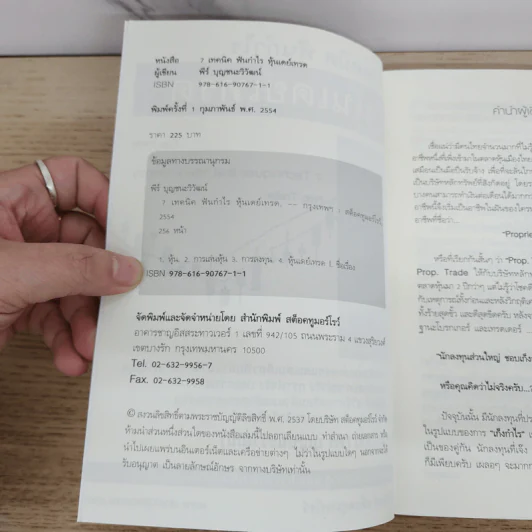 หนังสือ 7 เทคนิค ฟันกำไร หุ้นเดย์เทรด
ผู้เขียน พีร์ บุญชนะวิวัฒน์
ISBN 978-616-90767-1-1
พิมพ์ครั้งที่ 1 กุมภาพันธ์ พ.ศ. 2554
ราคา 225 บาท
ข้อมูลทางบรรณานุกรม
พีร์ บุญชนะวิวัฒน์
7 เทคนิค ฟันกำไร หุ้นเดย์เทรด. -- กรุงเทพฯ : สต็อคทูมอร์โรว์,
2554
256 หน้า
1. หุ้น. 2. การเล่นหุ้น 3. การลงทุน. 4. หุ้นเดย์เทรด I. ชื่อเรื่อง
ISBN 978-616-90767-1-1
จัดพิมพ์และจัดจำหน่ายโดย สำนักพิมพ์ สต็อคทูมอร์โรว์
อาคารชาญอิสสระทาวเวอร์ 1 เลขที่ 942/105 ถนนพระราม 4 แขวงสุริยวงศ์
เขตบางรัก กรุงเทพมหานคร 10500
Tel. 02-632-9956-7
Fax. 02-632-9958
© สงวนลิขสิทธิ์ตามพระราชบัญญัติลิขสิทธิ์ พ.ศ. 2537 โดยบริษัท สต็อคทูมอร์โรว์ จำกัด
ห้ามนำส่วนหนึ่งส่วนใดของหนังสือเล่มนี้ไปลอกเลียนแบบ ทำสำเนา ถ่ายเอกสาร หรือ
นำไปเผยแพร่บนอินเตอร์เน็ตและเครือข่ายต่างๆ ไม่ว่าในรูปแบบใดๆ นอกจากจะได้
รับอนุญาต เป็นลายลักษณ์อักษร จากทางบริษัทเท่านั้น
คำนำผู้
เชื่อแน่ว่ามีคนไทยจำนวนมากที่ไม่รู้
"Proprie
หรือที่เรียกกันสั้นๆ ว่า "Prop.
Prop. Trade ให้กับบริษัทหลัก
"นักลงทุนส่วนใหญ่ ชอบเก็ง
หรือคุณคิดว่าไม่จริงครับ...?
ปัจจุบันนั้น มีนักลงทุนที่
ในรูปแบบของการ "เก็งกำไร"
เป็นของคู่กัน นักลงทุนที่เจ๊ง
ก็มีเพียบครับ เผลอๆ จะมาก